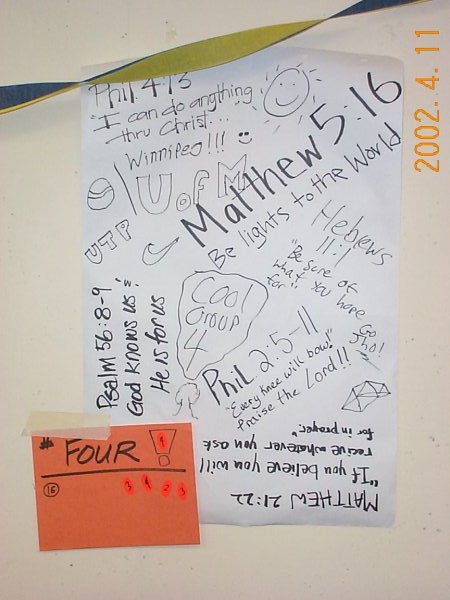 2002. 4. 11
Phil. 4:13
"I can do anything
thru Christ...
Winnipeg!!!
U of M
Matthew 5:16
Be lights to the World
UTP
Hebrews
11:1
"Be sure of
what you hope
for"
Cool
Group
4
Psalm 56:8-9
God knows us &
He is for us
Phil 2:5-11
"Every knee will bow!"
Praise the Lord!!
Go
MATTHEW 21:22
"If you believe you will
recive whatever you ask
for in prayer"
# FOUR!
4
16
3 4 2 3